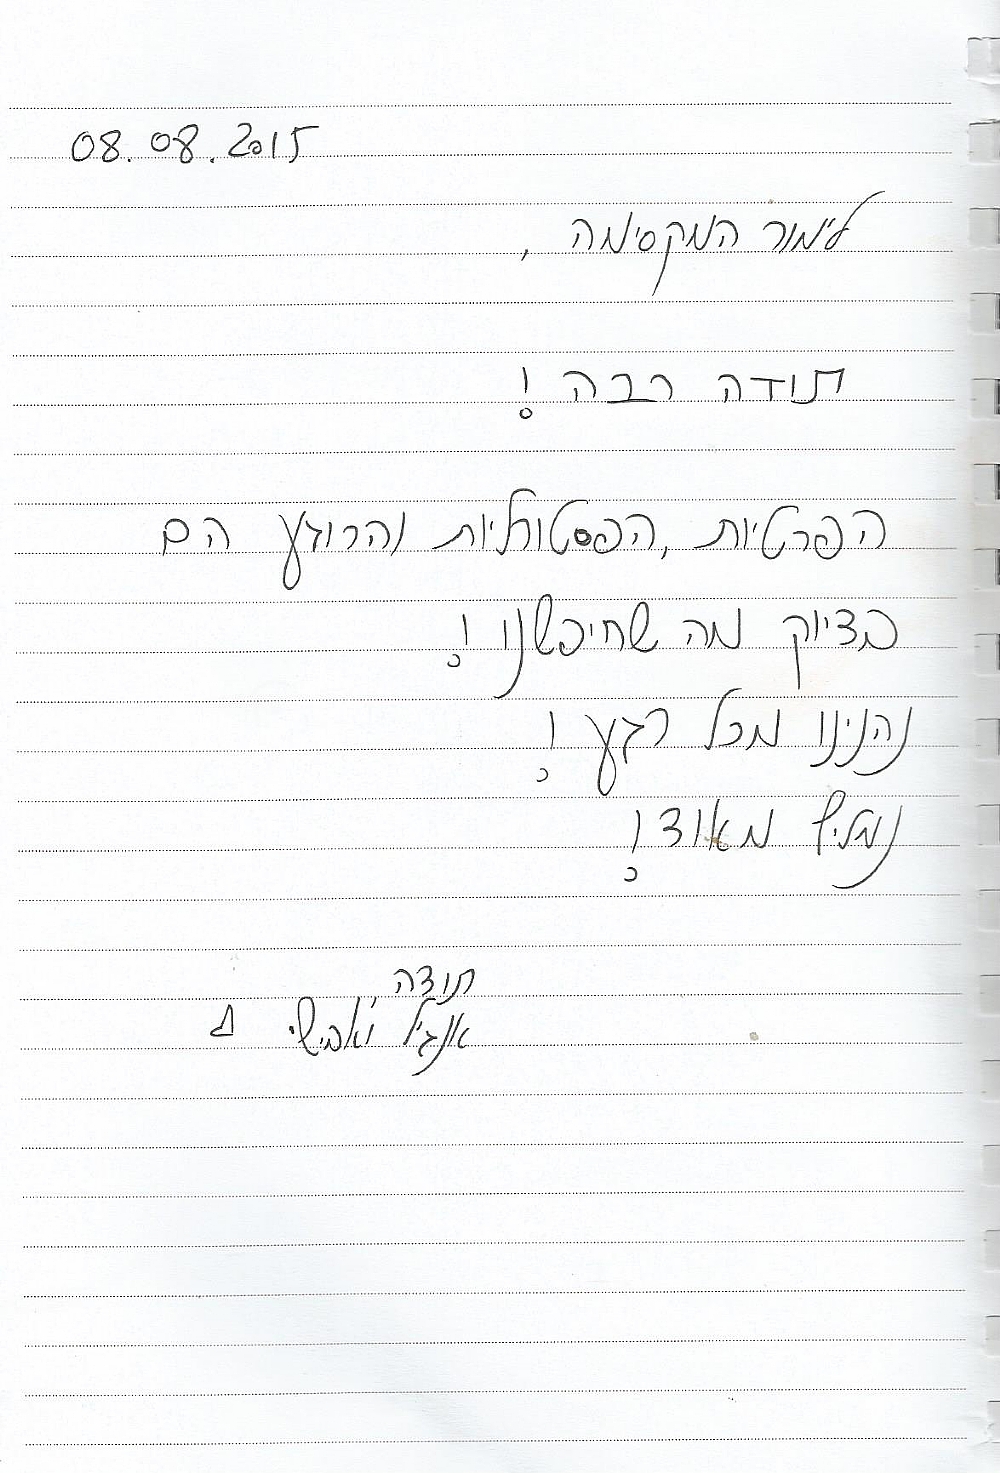 08.08.2015
לימור המקסימה,
תודה רבה!
הפרטיות, הפסטורליות והרוגע הם
בדיוק מה שחיפשנו!
נהנינו מכל רגע!
נמליץ מאוד!
תודה
ואבישי